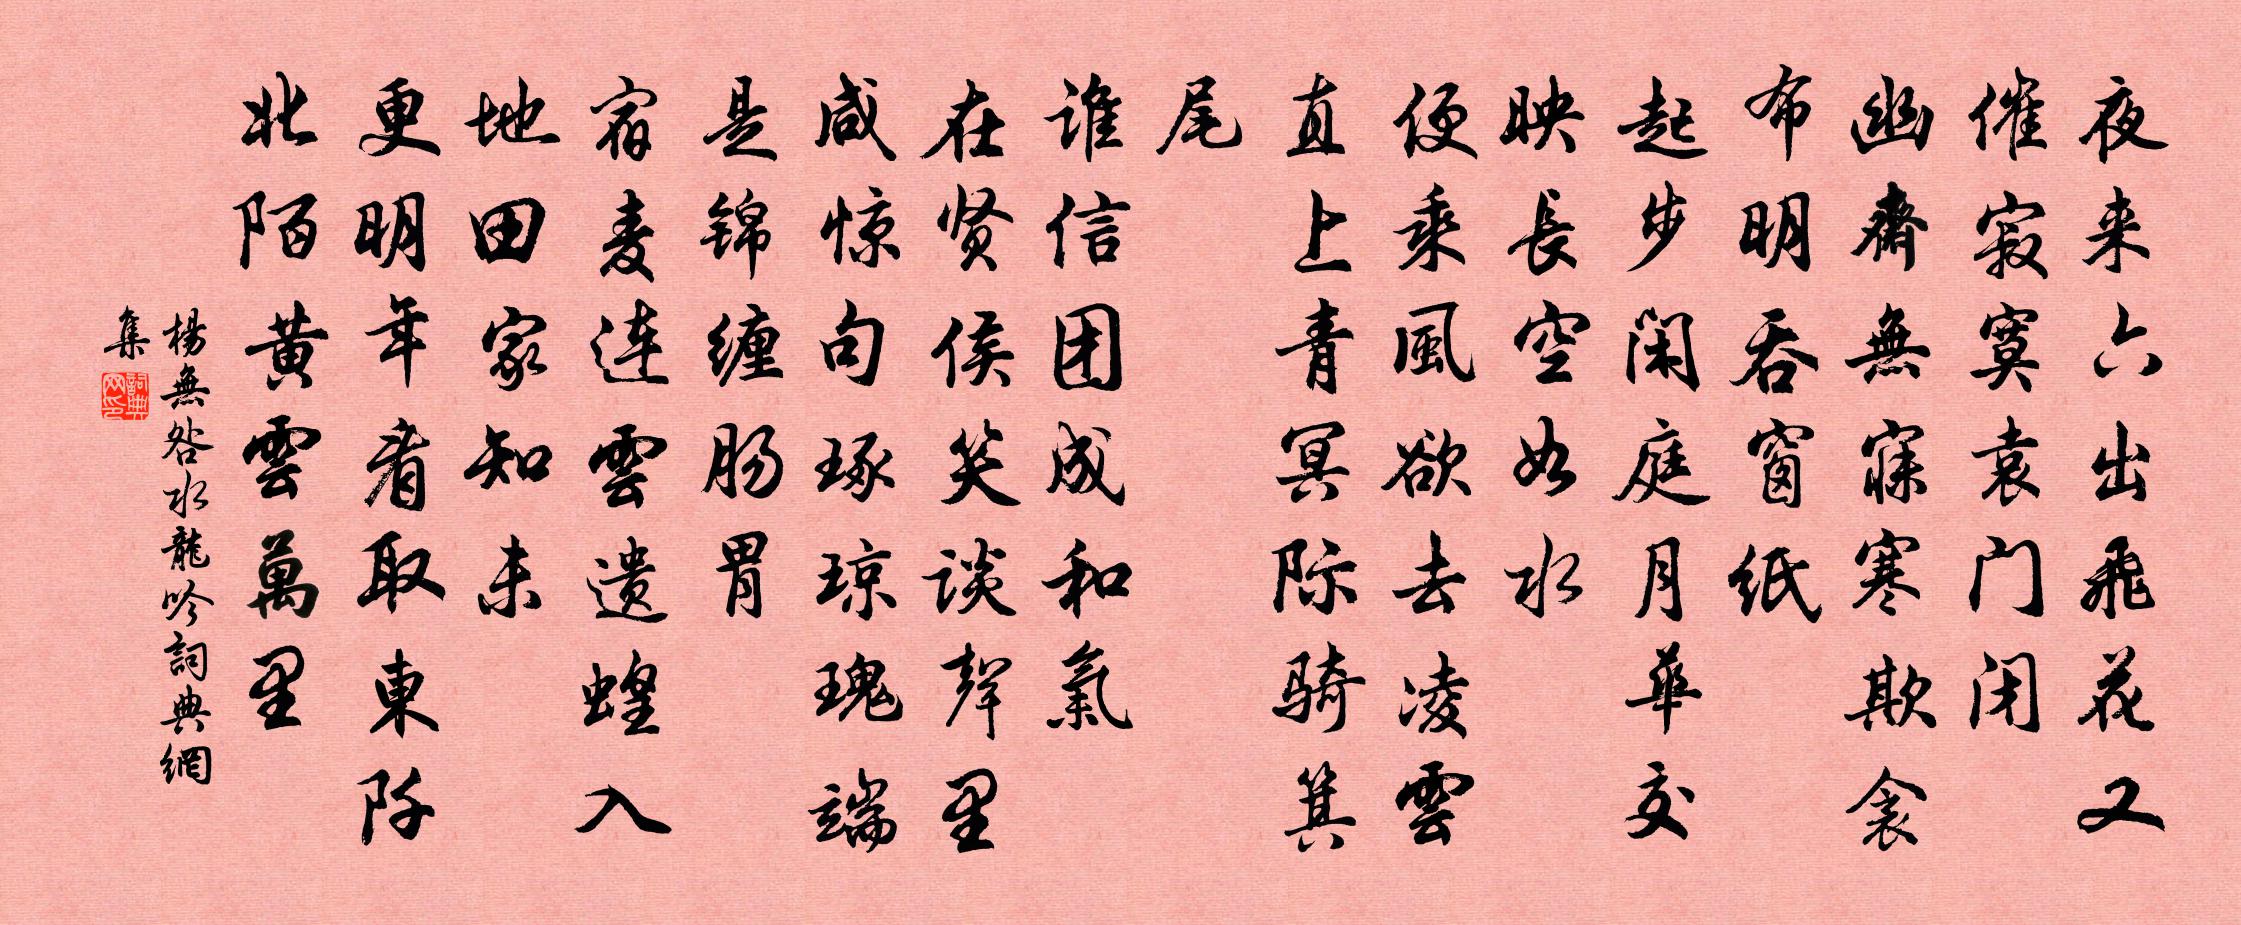 夜来六出飛花又
催寂寞袁门闭
幽齋無寐寒欺衾
布明吞窗纸
起步闲庭月華交
映長空如水
便乘風欲去凌雲
直上青冥际骑箕
尾
谁信团成和氣
在贤侯笑谈聲里
咸惊句琢琼瑰端
是锦缠肠胃
宿麦连雲遗蝗入
地田家知未
更明年看取東阡
北陌黄雲萬里
楊無咎水龍吟詞典網
集
詞典
网印